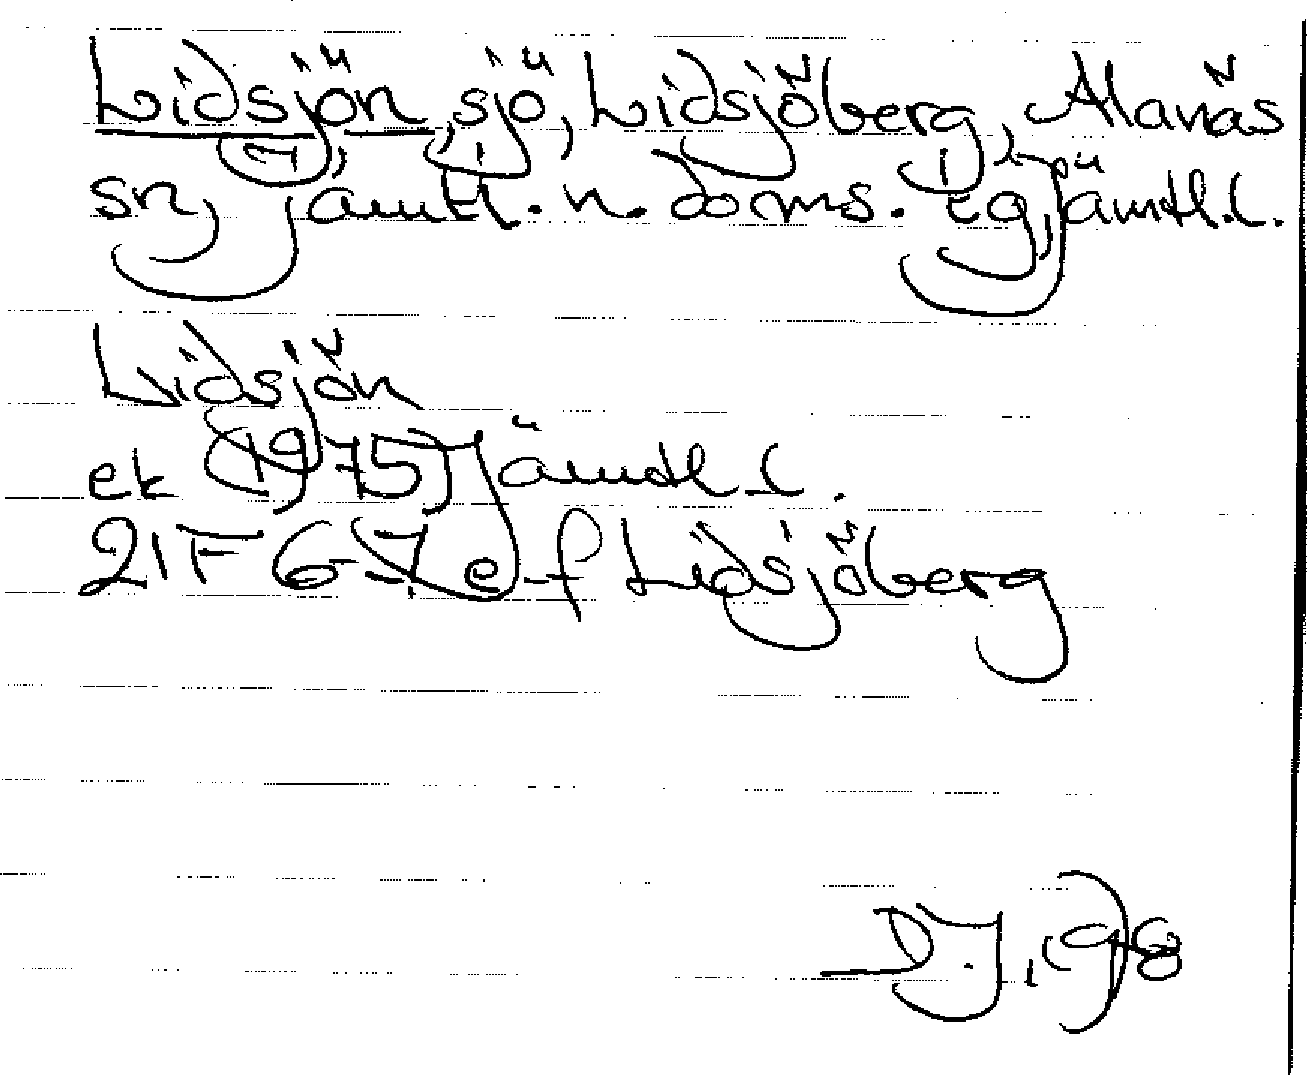 Lidsjön, sjö, Lidsjöberg, Alanäs
sn, jämtl. n. doms. tg, jämtl. l.
Lidsjön
ek 1975 Jämtl l.
21F 6-7 e-f Lidsjöberg
D.J. (98)